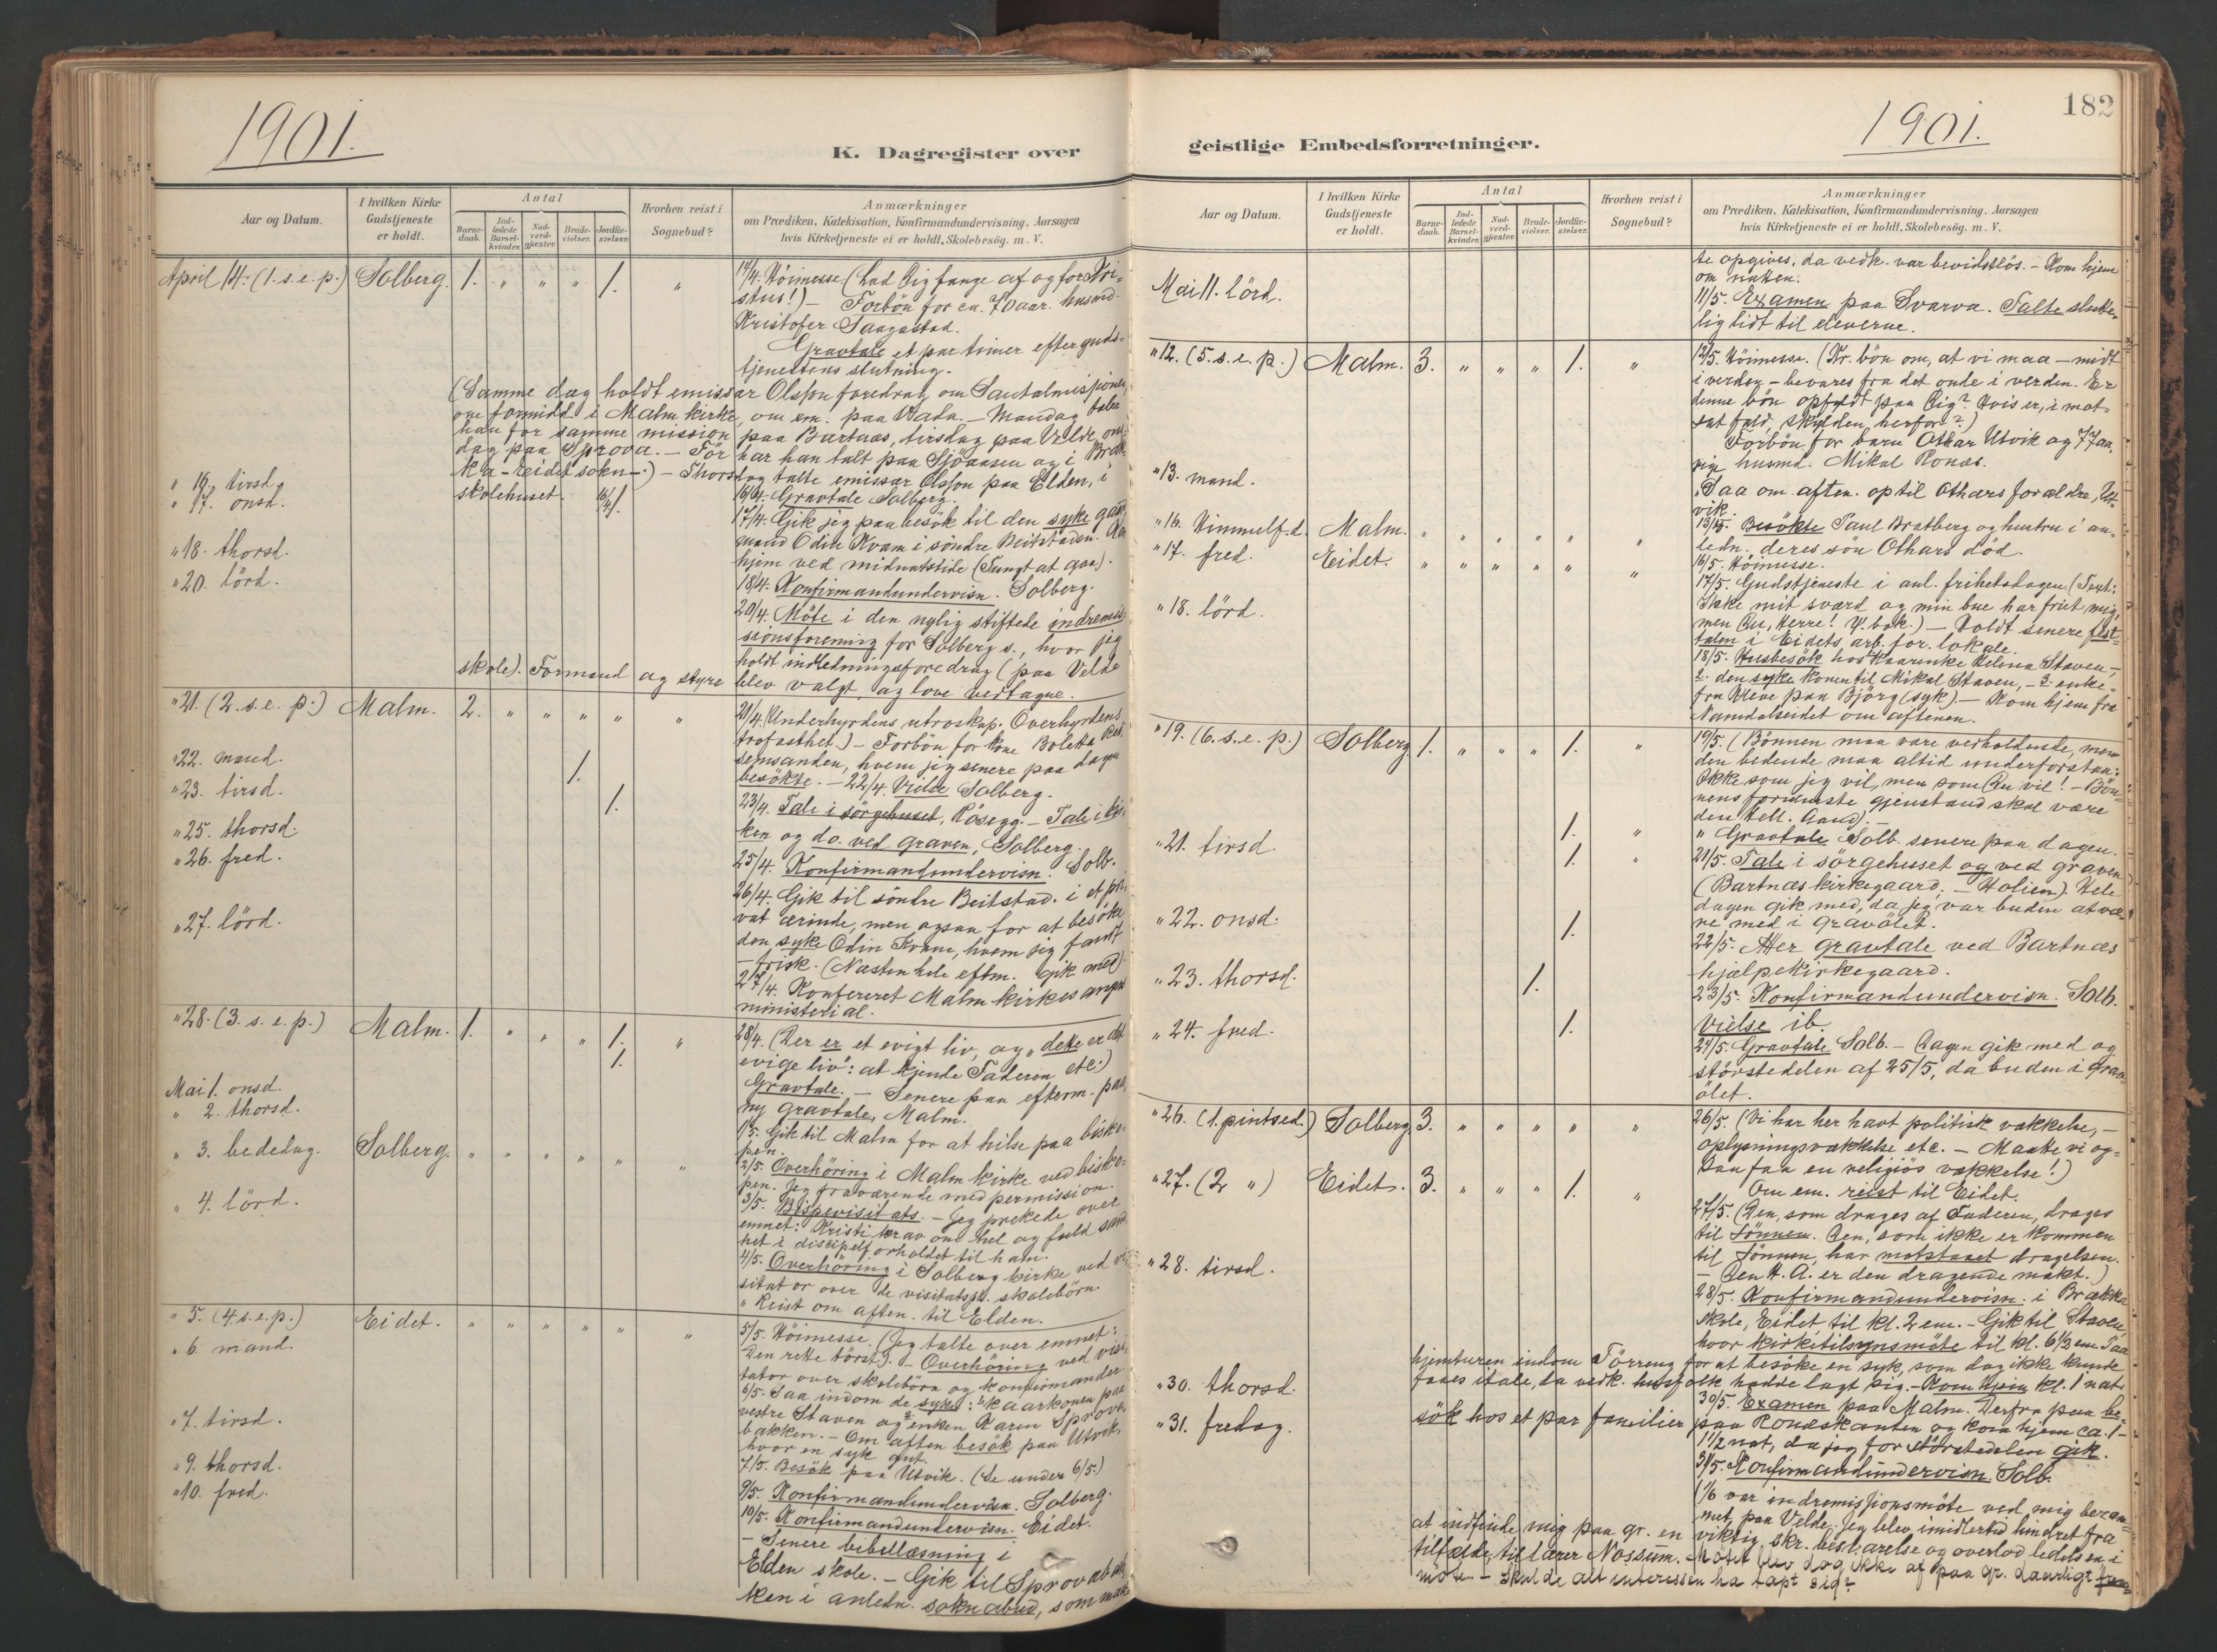 1901.
K. Dagregister over
Aar og Datum.
I hvilken Kirke Gudstjeneste er holdt.
Antal
Barnedaab.
Indledede Barselkvinder.
Nadverdgjester.
Brudevielser.
Jordfæstelser.
Hvorhen reist i Sognebud?
Anmærkninger
om Prædiken, Katekisation, Konfirmandundervisning, Aarsagen
hvis Kirketjeneste ei er holdt, Skolebesøg. m. V.
April 14. (1. s. e. p.) Solberg. 1. " " " 1. " 14/4. Höimesse (Lad dig fange af og for Kri-
stus!) – Forbön for ca. 70 aar. husmd.
Kristofer Saagastad.
Gravtale et par timer efter guds-
tjenestens slutning.
(Samme dag holdt emissær Olsson foredrag om Santalmissjonen,
om formidd. i Malm kirke, om em. paa Vada. – Mandag taler
han for samme mission paa Bartnæs, tirsdag paa Velde, ons-
dag paa Sprova. – Før har han talt paa Sjöaasen og i Bræk-
ka – Eidet sokn –) – Thorsdag talte emissær Olsson paa Elden, i
skolehuset.
" 16. tirsd. 16/4. 1. 16/4. Gravtale Solberg.
" 17. onsd. 17/4. Gik jeg paa besök til den syke gaard-
mand Odin Kvam i söndre Beitstaden.
hjem ved midnatstide (Tungt at gaa).
" 18. thorsd. 18/4. Konfirmandundervisn. Solberg.
" 20. lörd. 20/4. Möte i den nylig stiftede indremis-
sionsforening for Solberg s., hvor jeg
holdt indledningsforedrag (paa Velde
skole). Formand og styre blev valgt og love vedtagne.
" 21. (2. s. e. p.) Malm. 2. " " " " " 21/4. (Underhyrdens utroskap. Overhyrdens
trofasthet.) – Forbön for kone Boletta
hvem jeg senere paa dagen
" 22. mand. 1. besökte. – 22/4. Vielse Solberg.
" 23. tirsd. 1. 23/4. Tale i sörgehuset, Rösegg. – Tale i kir-
ken og do. ved graven, Solberg.
" 25. thorsd. 25/4. Konfirmandundervisn. Solb.
" 26. fred. 26/4. Gik til söndre Beitstad. i et pri-
vat ærinde, men ogsaa for at besöke
den syke Odin Kvam, hvem jeg fandt
– frisk. (Næsten hele eftm. gik med)
" 27. lörd. 27/4. Konfereret Malm kirkes
ministerial.
" 28. (3. s. e. p.) Malm. 1. " " " 1. " 28/4. (Der er et evigt liv, og „dette er det
1. evige liv": at kjende Faderen etc.)
Gravtale. – Senere paa efterm. paa
ny gravtale, Malm.
Mai 1. onsd. 1/5. Gik til Malm for at hilse paa bisko-
pen.
" 2. thorsd. 2/5. Overhöring i Malm kirke ved bisko-
pen. Jeg fraværende med permission.
" 3. bededag. Solberg. " " " " " " 3/5. Bispevisitats. – Jeg prekede over
emnet: Kristi krav om hel og fuld sand-
het i discipelforholdet til ham.
" 4. lörd. 4/5. Overhöring i Solberg kirke ved vi-
sitator over de visitatspl. skolebörn.
" Reist om aften. til Elden.
" 5. (4. s. e. p.) Eidet. " " " " " " 5/5. Höimesse. (Jeg talte over emnet:
Den rette törst). – Overhöring ved visi-
tator over skolebörn og konfirmander
" 6. mand. 6/5. Saa indom de syke: 1. kaarkonen paa
vestre Staven og 2. enken Karen Sprova-
bakken. – Om aften besök paa Utvik,
hvor en syk gut.
" 7. tirsd. 7/5. Besök paa Utvik. (Se under 6/5.)
" 9. thorsd. 9/5. Konfirmandundervisn. Solberg.
" 10. fred. 10/5. Konfirmandundervisn. Eidet.
– Senere bibellæsning i
Elden skole. – Gik til Sprovabak-
ken i anledn. soknebud, som maat-
182
1901.
geistlige Embedsforretninger.
Aar og Datum.
I hvilken Kirke Gudstjeneste er holdt.
Antal
Barnedaab.
Indledede Barselkvinder.
Nadverdgjester.
Brudevielser.
Jordfæstelser.
Hvorhen reist i Sognebud?
Anmærkninger
om Prædiken, Katekisation, Konfirmandundervisning, Aarsagen
hvis Kirketjeneste ei er holdt, Skolebesøg. m. V.
te opgives, da vedk. var bevidstlös. – Kom hjem
om natten.
Mai 11. lörd. 11/5. Examen paa Svarva. Talte slutte-
lig lidt til eleverne.
" 12. (5. s. e. p.) Malm. 3. " " " 1. " 12/5. Höimesse. (Kr. bön om, at vi maa – midt
i verden – bevares fra det onde i verden. Er
denne bön opfyldt paa dig? Hvis er, i mot-
sat fald, skylden herfor?)
Forbön for barn Othar Utvik og 77 aa-
rig husmd. Mikal Ronæs.
Saa om aften. op til Othars forældre, Ut-
vik.
" 13. mand. 13/5. Besökte Paul Bratberg og hustru i an-
ledn. deres sön Othars död.
" 16. Himmelf.d. Malm. " " " " " " 16/5. Höimesse.
" 17. fred. Eidet. " " " " " " 17/5. Gudstjeneste i anl. frihetsdagen (Text:
Ikke mit sværd og min bue har friet mig,
men Du, Herre! – Holdt senere fest-
talen i Eidets arb. for. lokale.
" 18. lörd. 18/5. Husbesök hos kaarenke Helina Staven, –
2. den syke konen til Mikal Staven, – 3. enke-
fru Kleve paa Björg (syk). – Kom hjem fra
Namdalseidet om aftenen.
" 19. (6. s. e. p.) Solberg. 1. " " " 1. " 19/5. (Bönnen maa være vedholdende, men
den bedende maa altid underforstaa:
Ikke som jeg vil, men som Du vil! – Bön-
nens fornemste gjenstand skal være
den hell. Aand). –
1. " " Gravtale Solb. senere paa dagen.
" 21. tirsd. 1. " 21/5. Tale i sörgehuset og ved graven
(Bartnæs kirkegaard; – Holien). Hele
dagen gik med, da jeg var buden at væ-
re med i gravölet.
" 22. onsd. 1. 22/5. Atter gravtale ved Bartnæs
hjælpekirkegaard.
" 23. thorsd. 1. 23/5. Konfirmandundervisn. Solb.
Vielse ib.
" 24. fred. 1. 24/5. Gravtale Solb. – Dagen gik med og
störstedelen af 25/5, da buden i grav-
ölet.
" 26. (1. pintsed.) Solberg. 3. " " " " " 26/5. (Vi har her havt politisk vækkelse, –
oplysningsvækkelse etc. – Maatte vi og-
saa faa en religiös vækkelse!)
Om em. reist til Eidet.
" 27. (2 ") Eidet. 3. " " " 1. " 27/5. (Den, som drages af Faderen, drages
til Sönnen. Den, som ikke er kommen
til Sönnen, har motstaaet dragelsen.
– Den H. A. er den dragende makt.)
" 28. tirsd. 28/5. Konfirmandundervisn. i Brækka
skole, Eidet til kl. 2 em. – Gik til Staven,
hvor kirketilsynsmöte til kl. 6 1/2 em. Paa
hjemturen indom Törreng for at besöke en syk, som dog ikke kunde
faaes i tale, da vedk. husfolk hadde lagt sig. – Kom hjem kl. 1 nat.
" 30. thorsd. 30/5. Examen paa Malm. Derfra paa be-
sök hos et par familier paa Ronæskanten og kom hjem ca. 1 –
1 1/2 nat, da jeg for störstedelen gik.
" 31. fredag. 31/5. Konfirmandundervisn. Solb.
(1/6 var indremissjonsmöte ved mig beram-
met, paa Velde. Jeg blev imidlertid hindret fra
at indfinde mig paa gr. en viktig skr. besvarelse og overlod ledelsen i
tilfælde til lærer Nossum. – Mötet blev dog ikke af paa gr. daarligt frem-
möte. – Skulde alt interessen ha tapt sig?